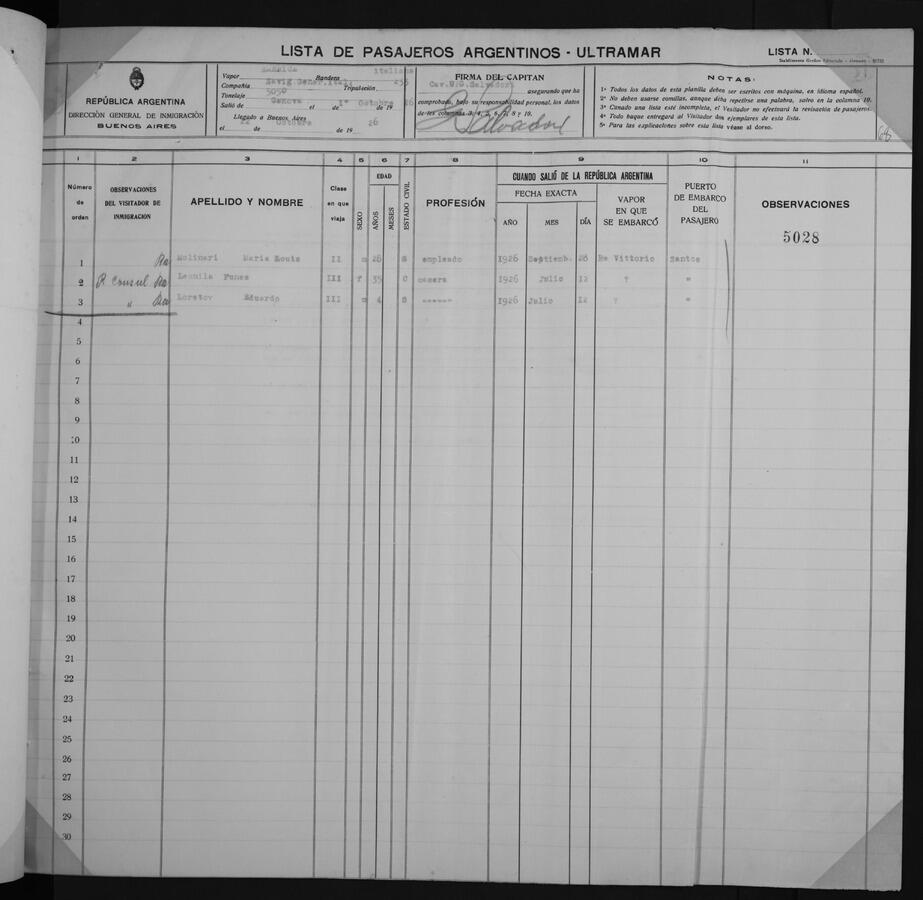 LISTA DE PASAJEROS ARGENTINOS - ULTRAMAR
LISTA N.
REPÚBLICA ARGENTINA
DIRECCIÓN GENERAL DE INMIGRACIÓN
BUENOS AIRES
Vapor Bandera italiana
Compañia Navig.Gener.Ital. Tripulación
Tonelaje 5050
Salió de Genova el 1° de Octubre de 19 26
Llegado a Buenos Aires
el de Octubre de 19 26
FIRMA DEL CAPITAN
Cav. Salvadori
asegurando que ha
comprobado, bajo su responsabilidad personal, los datos
de las columnas 3, 4, 5, 6, 7, 8 y 10.
NOTAS:
1ª Todos los datos de esta planilla deben ser escritos con máquina, en idioma español.
2ª No deben usarse comillas, aunque deba repetirse una palabra, salvo en la columna 10.
3ª Cuando una lista esté incompleta, el Visitador no efectuará la revisación de pasajeros.
4ª Todo buque entregará al Visitador dos ejemplares de esta lista.
5ª Para las explicaciones sobre esta lista véase al dorso.
68
1 2 3 4 5 6 7 8 9 10 11
Número de orden
OBSERVACIONES DEL VISITADOR DE INMIGRACIÓN
APELLIDO Y NOMBRE
Clase en que viaja
SEXO
EDAD
AÑOS
MESES
ESTADO CIVIL
PROFESIÓN
CUANDO SALIÓ DE LA REPÚBLICA ARGENTINA
FECHA EXACTA
AÑO MES DÍA
VAPOR EN QUE SE EMBARCÓ
PUERTO DE EMBARCO DEL PASAJERO
OBSERVACIONES
5028
1 Molinari Maria Louis II m 26 S empleado 1926 Septiemb. 28 Re Vittorio Santos
2 R consul Leonila Funes III f 35 C casera 1926 Julio 12 ? "
3 " Loretov Eduardo III m 4 S ------ 1926 Julio 12 ? "
4
5
6
7
8
9
10
11
12
13
14
15
16
17
18
19
20
21
22
23
24
25
26
27
28
29
30